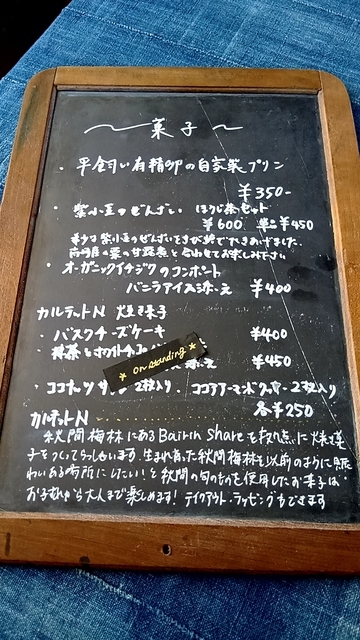 菓子
・平飼い有精卵の自家製プリン
¥350-
・紫小豆のぜんざい ほうじ茶セット
¥600 単品¥450
希少な紫小豆のぜんざいをきび糖でたきあげました。
の栗の甘露煮と合わせてお楽しみ下さい
・オーガニックイチジクのコンポート
バニラアイス添え ¥400
カルテットN 焼き菓子
・バスクチーズケーキ ¥400
・抹茶とホワイトチョコ 添え ¥450
★ on standing ★
・ココナッツサブレ 2枚入り ココアアーモンドクッキー 2枚入り
各¥250
カルテットN
秋間梅林にあるBairin Shareを拠点に焼き菓
子をつくってらっしゃいます。生まれ育った秋間梅林を以前のように賑
わいある場所にしたい!と秋間の旬のものを使用したお菓子は
お子様から大人まで楽しめます! テイクアウト・ラッピングもできます